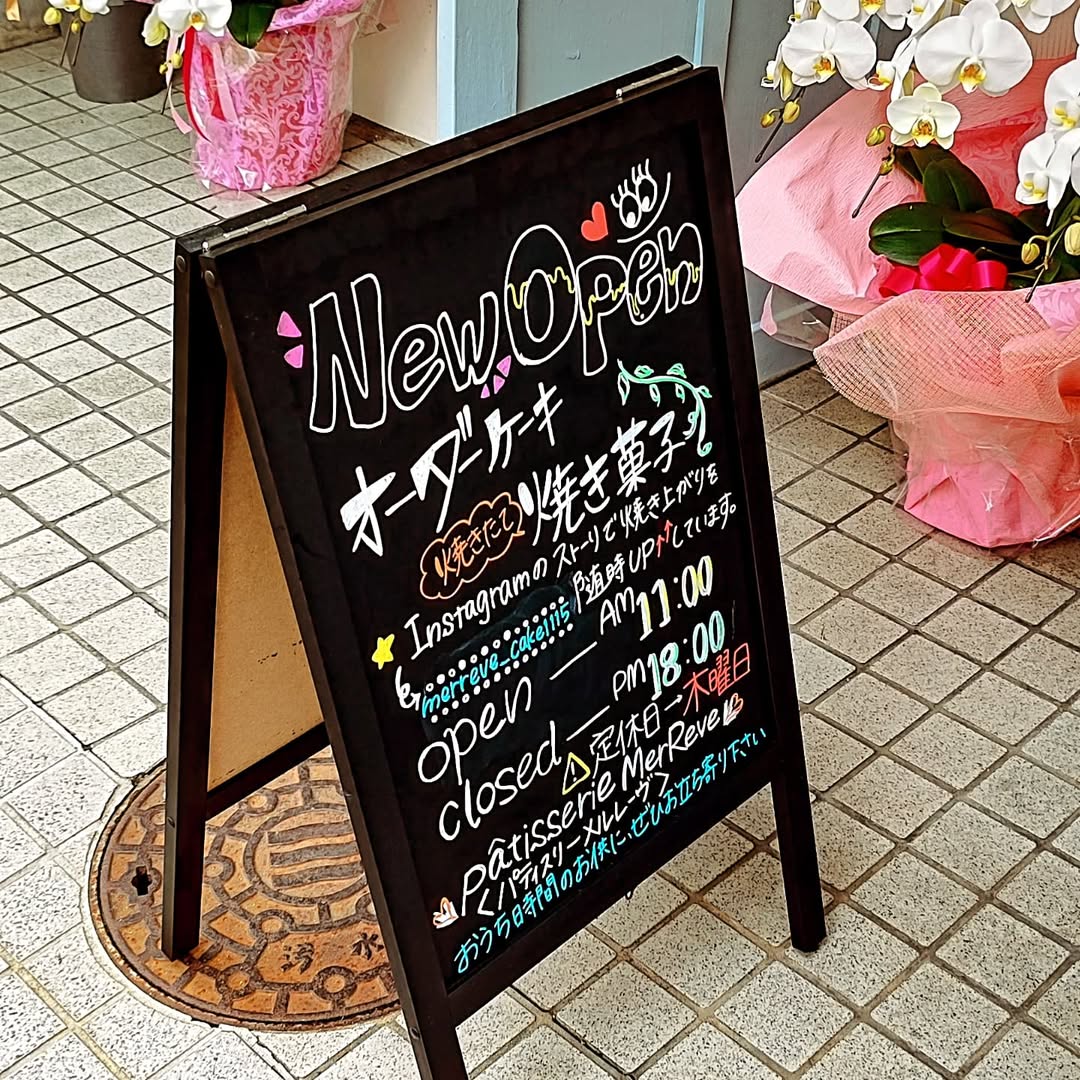 New Open
オーダーケーキ
焼きたて 焼き菓子
Instagramのストーリで焼き上がりを
随時UPしています。
merreve_cake1115
open — AM 11:00
closed — PM 18:00
定休日→木曜日
Pâtisserie MerReve
<パティスリーメルレーヴ>
おうち時間のお供に、ぜひお立ち寄り下さい